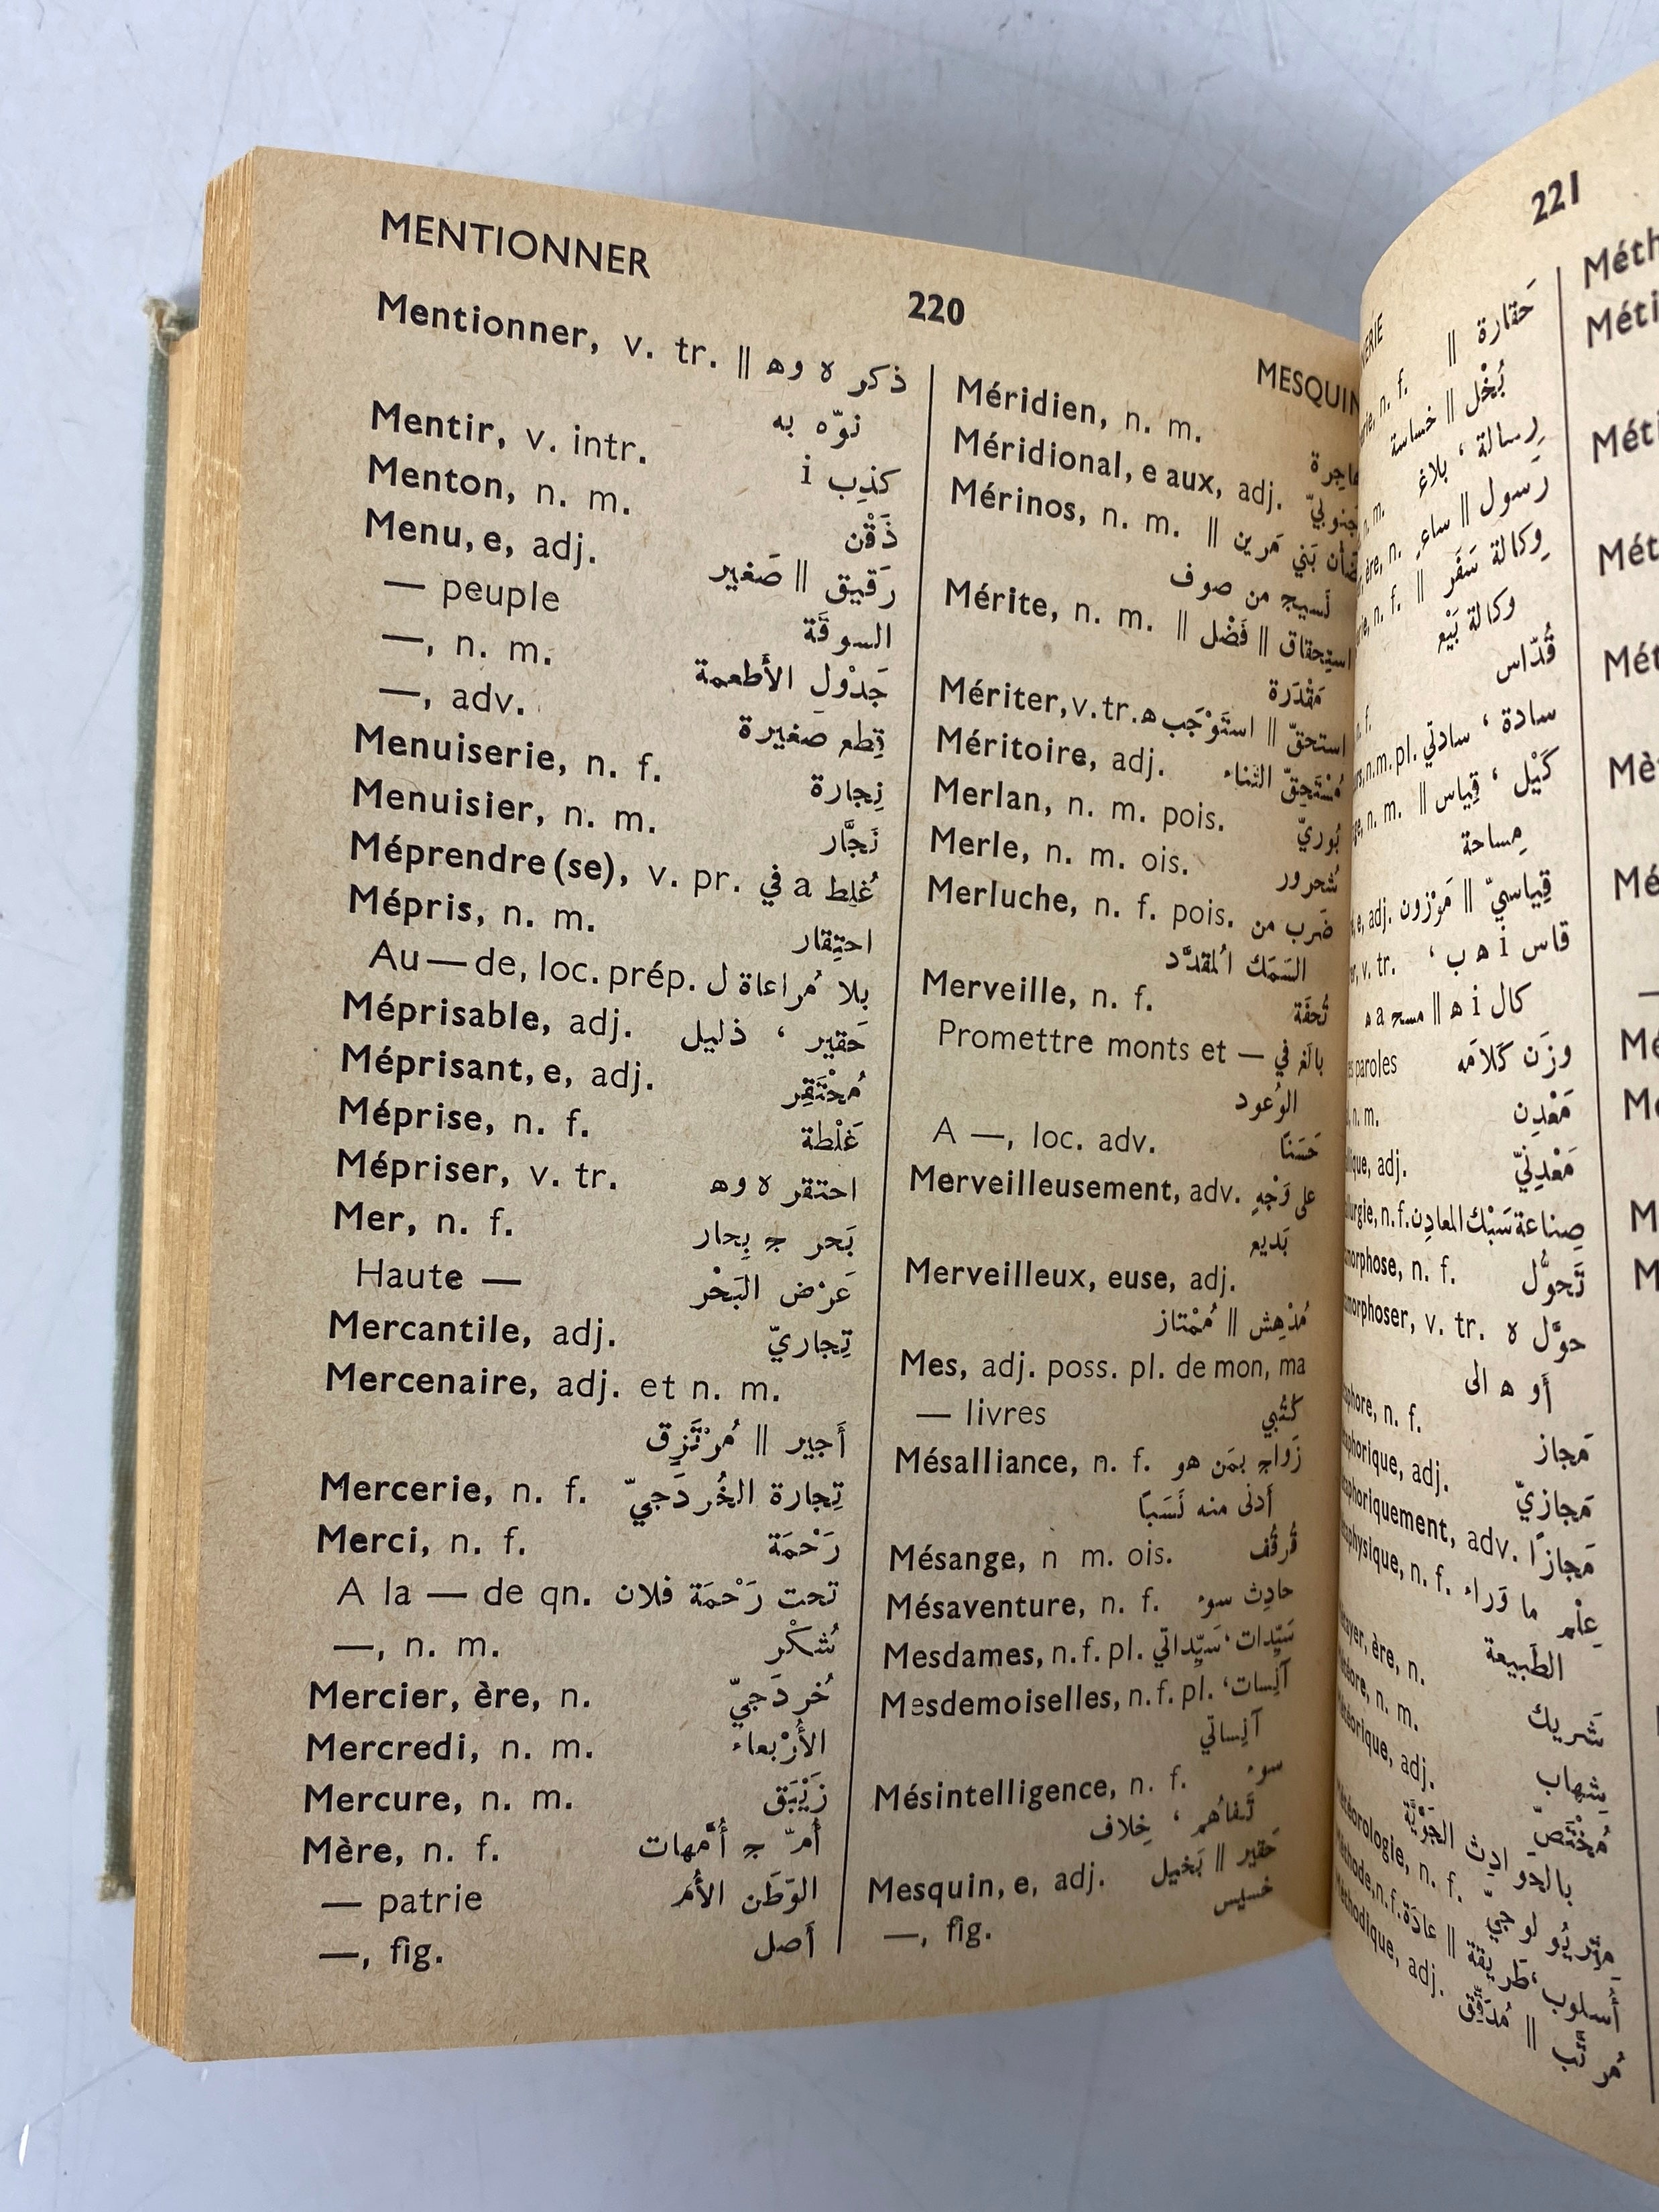 MENTIONNER
220
MESQUIN
Mentionner, v. tr. ذكر ه وﻫ ||
نوّه به
Mentir, v. intr. كذِب i
Menton, n. m. ذَقْن
Menu, e, adj. رَقيق || صَغير
— peuple السوقَة
—, n. m. جَدْول الأَطعمة
—, adv. قِطع صَغيرة
Menuiserie, n. f. نِجارة
Menuisier, n. m. نَجَّار
Méprendre (se), v. pr. غلِط a في
Mépris, n. m. احتِقار
Au — de, loc. prép. بلا مُراعاة ل
Méprisable, adj. حَقير ، ذليل
Méprisant, e, adj. مُحْتَقِر
Méprise, n. f. غَلْطة
Mépriser, v. tr. احتقر ه وﻫ
Mer, n. f. بَحر ج بِحار
Haute — عَرْض البَحْر
Mercantile, adj. تِجاريّ
Mercenaire, adj. et n. m.
أَجير || مُرْتَزِق
Mercerie, n. f. تِجارة الخُردَجيّ
Merci, n. f. رَحْمَة
A la — de qn. تحت رَحْمَة فلان
—, n. m. شُكْر
Mercier, ère, n. خُردَجيّ
Mercredi, n. m. الأَرْبعاء
Mercure, n. m. زَيْبَق
Mère, n. f. أُمّ ج أُمَّهات
— patrie الوَطَن الأُم
—, fig. أَصل
Méridien, n. m.
Méridional, e aux, adj.
Mérinos, n. m. ضأن بَني مَرين ||
نَسيج من صوف
Mérite, n. m. استِحقاق || فَضْل ||
مَقْدَرة
Mériter, v. tr. استحقّ || استَوْجَب ﻫ
Méritoire, adj. مُسْتَحِقّ الثناء
Merlan, n. m. pois. بُوريّ
Merle, n. m. ois. شُحرور
Merluche, n. f. pois. ضَرب من
السَمَك المُقدَّد
Merveille, n. f. تُحفَة
Promettre monts et — بالَغ في
الوُعود
A —, loc. adv. حَسَنًا
Merveilleusement, adv. على وَجْهٍ
بَديع
Merveilleux, euse, adj.
مُدْهِش || مُمْتاز
Mes, adj. poss. pl. de mon, ma
— livres كُتُبي
Mésalliance, n. f. زَواج بمَن هو
أَدنى منه نَسَبًا
Mésange, n m. ois. قُرقُف
Mésaventure, n. f. حادِث سوء
Mesdames, n. f. pl. سَيِّدات ، سَيِّداتي
Mesdemoiselles, n. f. pl. آنِسات ،
آنِساتي
Mésintelligence, n. f. سوء
تَفاهُم ، خِلاف
Mesquin, e, adj. حَقير || بَخيل
—, fig. خسيس
221
حَقارة ||
n. f. بُخْل || خساسة
n. m. رِسالة ، بلاغ
ère, n. رَسول || ساعٍ
n. f. وِكالة سَفَر ||
وكالة بَيْع
قُدّاس
n. f.
n. m. pl. سادة ، سادتي
n. m. كَيْل ، قِياس ||
مِساحة
e, adj. قِياسيّ || مَوْزون
v. tr. قاس i ﻫ ب ،
كال i ﻫ || مسح a ﻫ
paroles وزَن كَلامَه
n. m. مَعْدِن
adj. مَعْدِنيّ
n. f. صِناعة سَبْك المعادِن
n. f. تَحوُّل
v. tr. حوَّل ه
أو ﻫ الى
n. f. مَجاز
adj. مَجازيّ
adv. مَجازًا
n. f. عِلْم ما وَراء
الطَبيعة
ère, n. شَريك
n. m. شِهاب
adj. مُخْتَصّ
بالحوادِث الجَوِّيَّة
n. f.
n. f. أُسلوب ، طَريقة || عادَة
adj. || مُدَقِّق
Méth
Méti
Méti